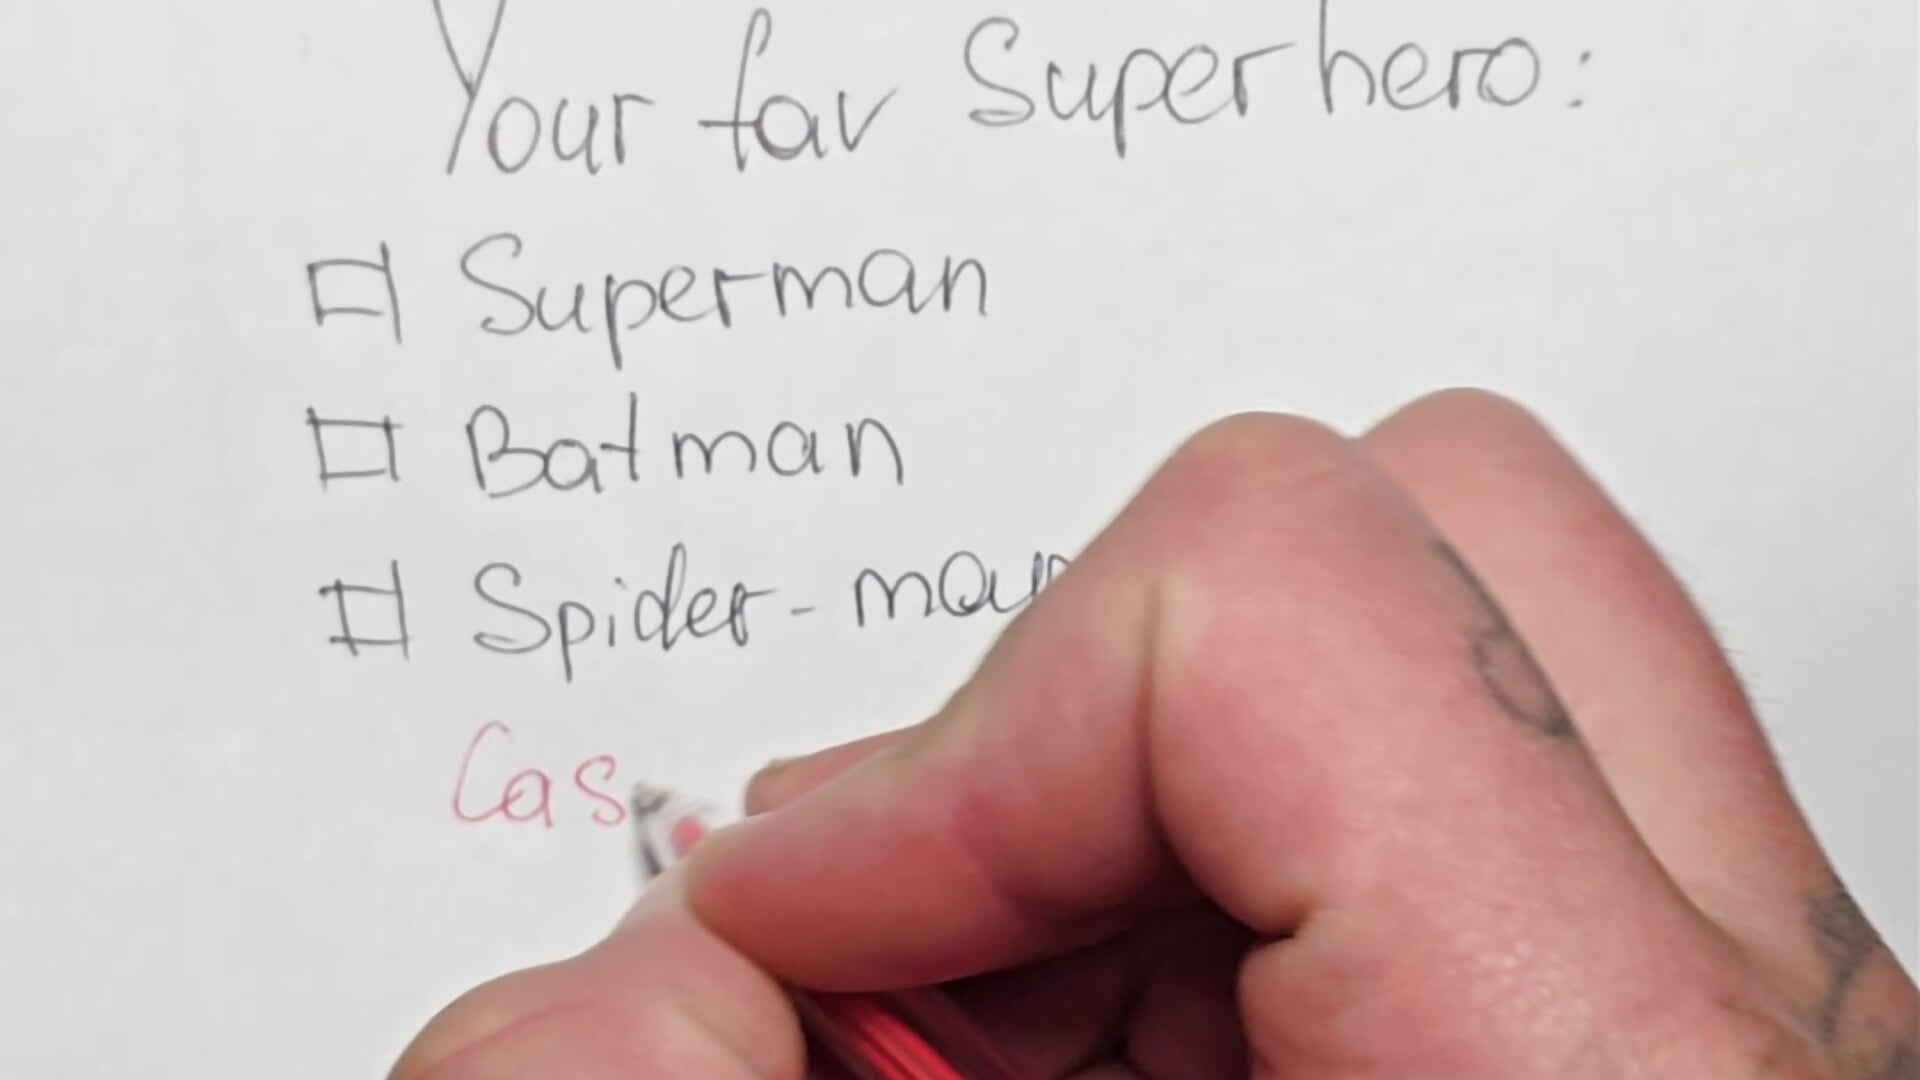 Your fav Superhero:
Superman
Batman
Spider-man
Cas